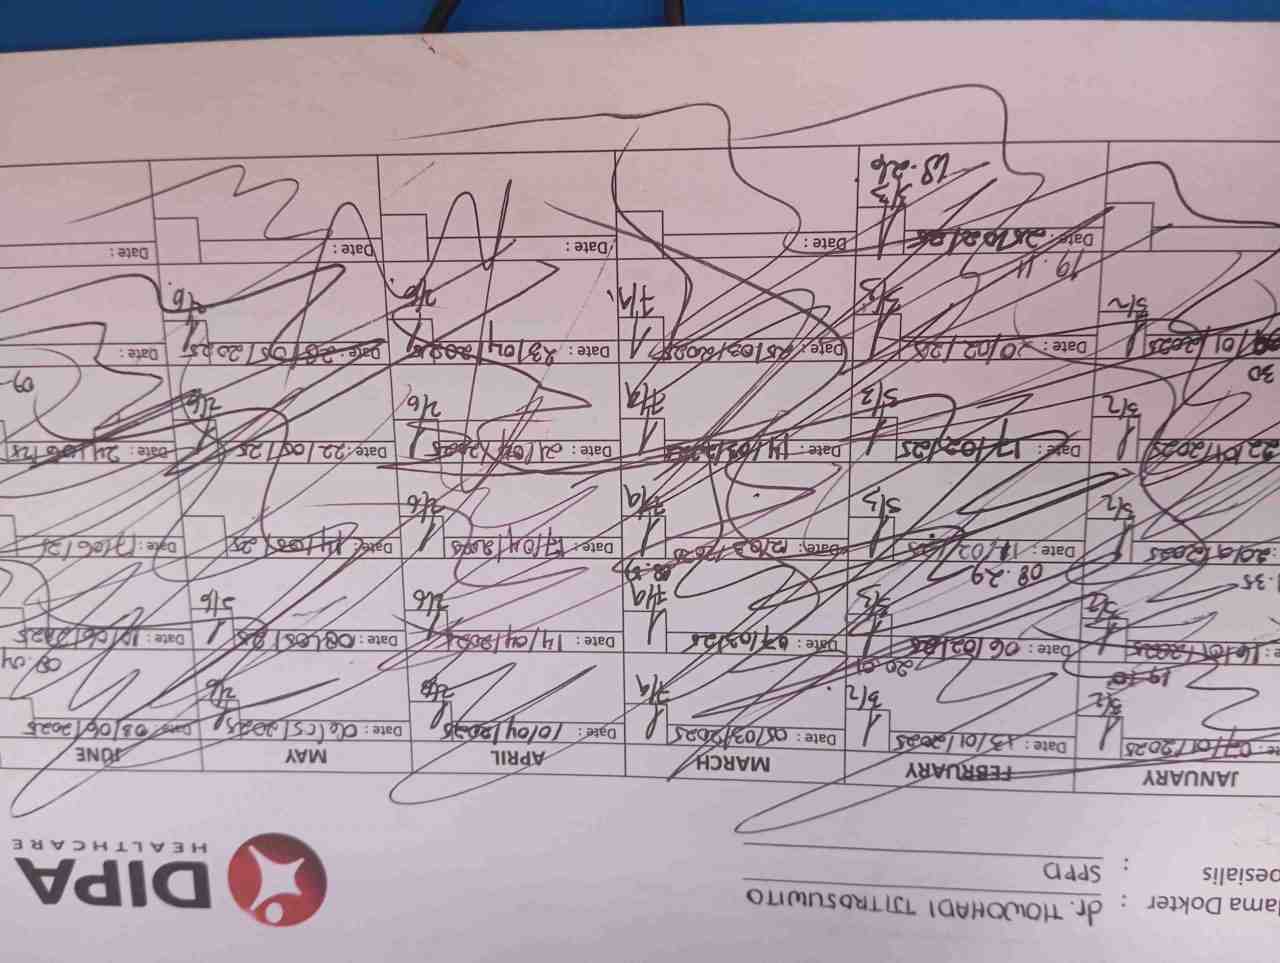 ama Dokter : dr. TJOWOHADI TJITROSUWITO
pesialis : SPPD
DIPA
HEALTHCARE
JANUARY FEBRUARY MARCH APRIL MAY JUNE
07/01/2025 Date : 13/01/2025 Date : 05/03/2025 Date : 10/04/2025 Date : 06/05/2025 Date : 03/06/2025
5/2 5/2 7/9 2/6 2/6
16/01/2025 Date : 06/02/25 Date : 07/03/25 Date : 14/04/2025 Date : 08/05/25 Date : 10/06/2025
5/2 20.01 5/3 7/9 2/6 2/6 09.04
.35 08.29
20/01/2025 Date : 11/02/25 Date : 12/03/2025 Date : 17/04/2025 Date : 14/05/25 Date : 17/06/25
5/2 5/3 7/9 2/6
22/01/2025 Date : 17/02/25 Date : 14/03/2025 Date : 21/04/2025 Date : 22/05/25 Date : 24/06/25
5/2 5/3 7/9 2/6 2/6
30 09-
/01/2025 Date : 20/02/25 Date : 25/03/2025 Date : 23/04/2025 Date : 28/05/2025 Date :
5/2 5/3 7/9 2/6 2/6
19.11
Date : 25/02/25 Date : Date : Date : Date :
5/3
18.26